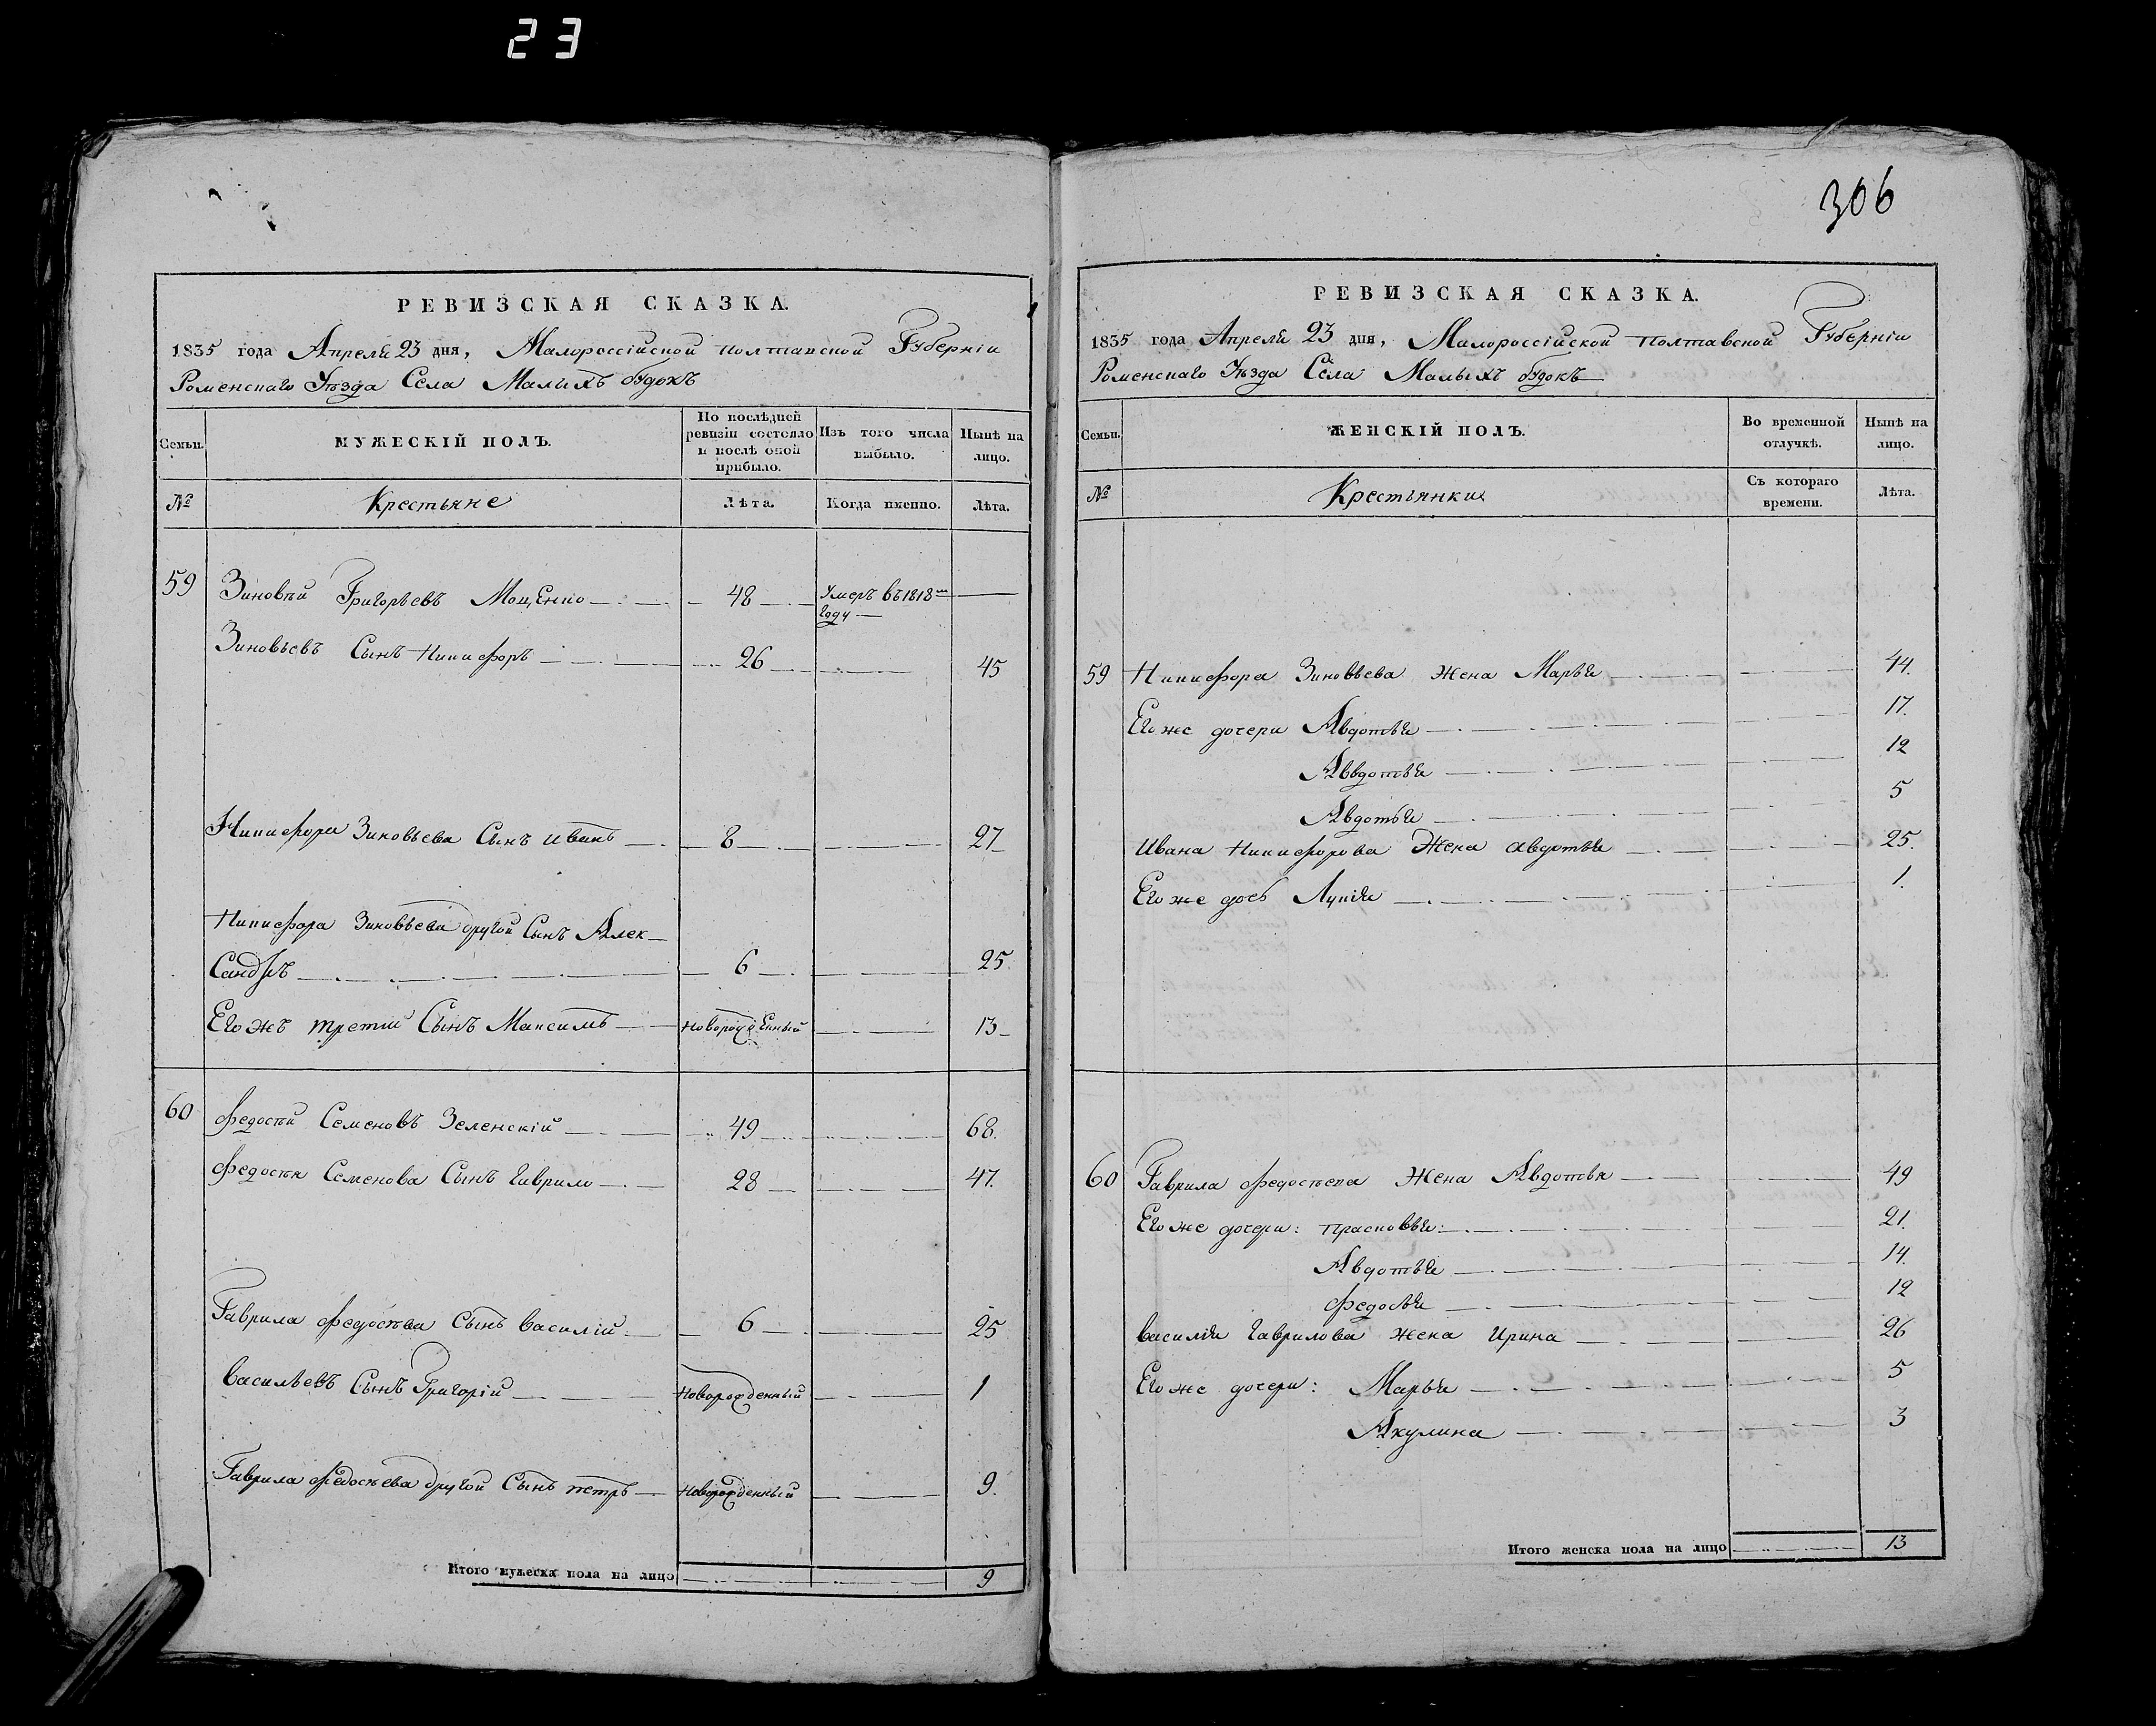 23
306
РЕВИЗСКАЯ СКАЗКА.
1835 года Апреля 23 дня, Малороссійской Полтавской Губерніи
Роменскаго Уѣзда Села Малыхъ будокъ
Семьи.
МУЖЕСКІЙ ПОЛЪ.
По послѣдней ревизіи состояло и послѣ оной прибыло.
Изъ того числа выбыло.
Нынѣ на лицо.
№
Крестьяне
Лѣта.
Когда именно.
Лѣта.
59 Зиновѣй Григорьевъ Моценко 48 Умеръ въ 1818м
году
Зиновьевъ Сынъ Никифоръ 26 45
Никифора Зиновьева Сынъ иванъ 8 27
Никифора Зиновьева другой Сынъ Алек
Сандръ 6 25
Его жъ третій Сынъ Максимъ новорожденный 13
60 Федосѣй Семеновъ Зеленскій 49 68.
Федосѣя Семенова Сынъ гаврило 28 47.
Гаврила Федосѣева Сынъ василій 6 25
васильевъ Сынъ Григорій новорожденный 1
Гаврила Федосѣева другой Сынъ петръ новорожденный 9.
Итого мужеска пола на лицо 9
РЕВИЗСКАЯ СКАЗКА.
1835 года Апреля 23 дня, Малороссійской Полтавской Губерніи
Роменскаго Уѣзда Села Малыхъ будокъ
Семьи.
ЖЕНСКІЙ ПОЛЪ.
Во временной отлучкѣ.
Нынѣ на лицо.
№
Крестьянки
Съ котораго времени.
Лѣта.
59 Никифора Зиновьева жена Марья 44.
Его же дочери Авдотья 17.
Аввдотья 12
Авдотья 5
Ивана Никифорова Жена авдотья 25.
Его же дочь Лукія 1.
60 Гаврила Федосѣева Жена Авдотья 49
Его же дочери: Прасковья: 21.
Авдотья 14.
Федосья 12
василія гаврилова жена Ирина 26
Его же дочери: Марья 5
Акулина 3
Итого женска пола на лицо 13